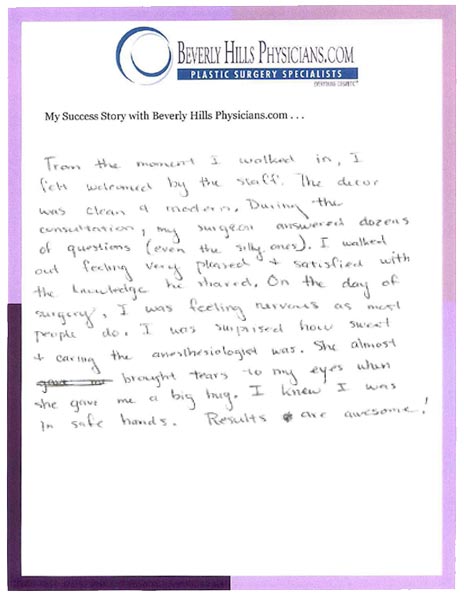 BEVERLY HILLS PHYSICIANS.COM
PLASTIC SURGERY SPECIALISTS
My Success Story with Beverly Hills Physicians.com . . .
From the moment I walked in, I
felt welcomed by the staff. The decor
was clean & modern. During the
consultation, my surgeon answered dozens
of questions (even the silly ones). I walked
out feeling very pleased & satisfied with
the knowledge he shared. On the day of
surgery, I was feeling nervous as most
people do. I was surprised how sweet
& caring the anesthesiologist was. She almost
gave me brought tears to my eyes when
she gave me a big hug. I knew I was
in safe hands. Results are awesome!